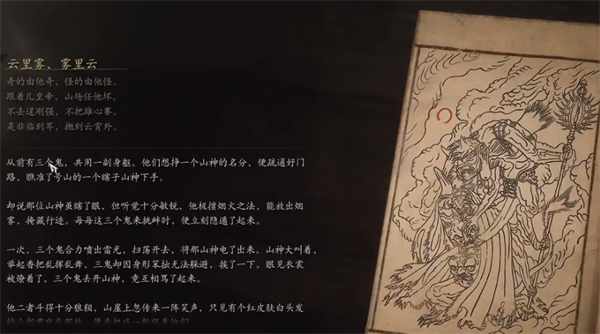 云里雾、雾里云
奇的由他奇，怪的由他怪。
跟着儿皇帝，山场任他坏。
不去逞刚强，不把雄心赛。
是非临到耳，抛到云霄外。
从前有三个鬼，共用一副身躯。他们想挣一个山神的名分，便疏通好门
路，瞧准了号山的一个瞎子山神下手。
却说那位山神虽瞎了眼，但听觉十分敏锐，他极擅烟火之法，能放出烟
雾，掩藏行迹。每每这三个鬼来挑衅时，便立刻隐遁了起来。
一次，三个鬼合力喷出雷光，扫荡开去，将那山神电了出来。山神大叫着，
举起香把乱挥乱舞，三鬼却因身形笨拙无法躲避，挨了一下。眼见衣裳
被燎着了，三个鬼丢开山神，竟互相骂了起来。
他二者斗得十分狼狈，山崖上忽传来一阵笑声，只见有个红皮肤白头发